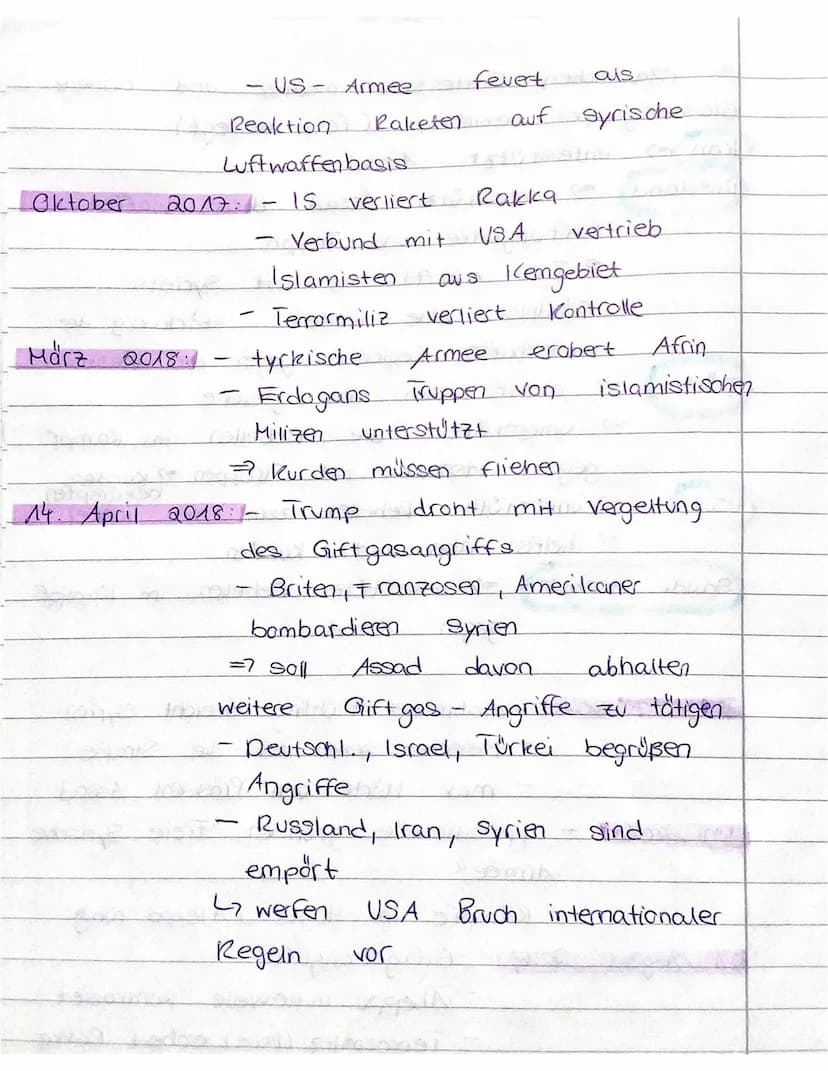 - US - Armee feuert als
Reaktion Raketen auf syrische
Luftwaffenbasis
Oktober 2017: - IS verliert Rakka
- Verbund mit USA vertrieb
Islamisten aus Kerngebiet
- Terrormiliz verliert Kontrolle
März 2018: - türkische Armee erobert Afrin
- Erdogans Truppen von islamistischen
Milizen unterstützt
=> Kurden müssen fliehen
14. April 2018: - Trump droht mit Vergeltung
des Giftgasangriffs
- Briten, Franzosen, Amerikaner
bombardieren Syrien
=> soll Assad davon abhalten
weitere Giftgas - Angriffe zu tätigen
- Deutschl., Israel, Türkei begrüßen
Angriffe
- Russland, Iran, Syrien sind
empört
↳ werfen USA Bruch internationaler
Regeln vor